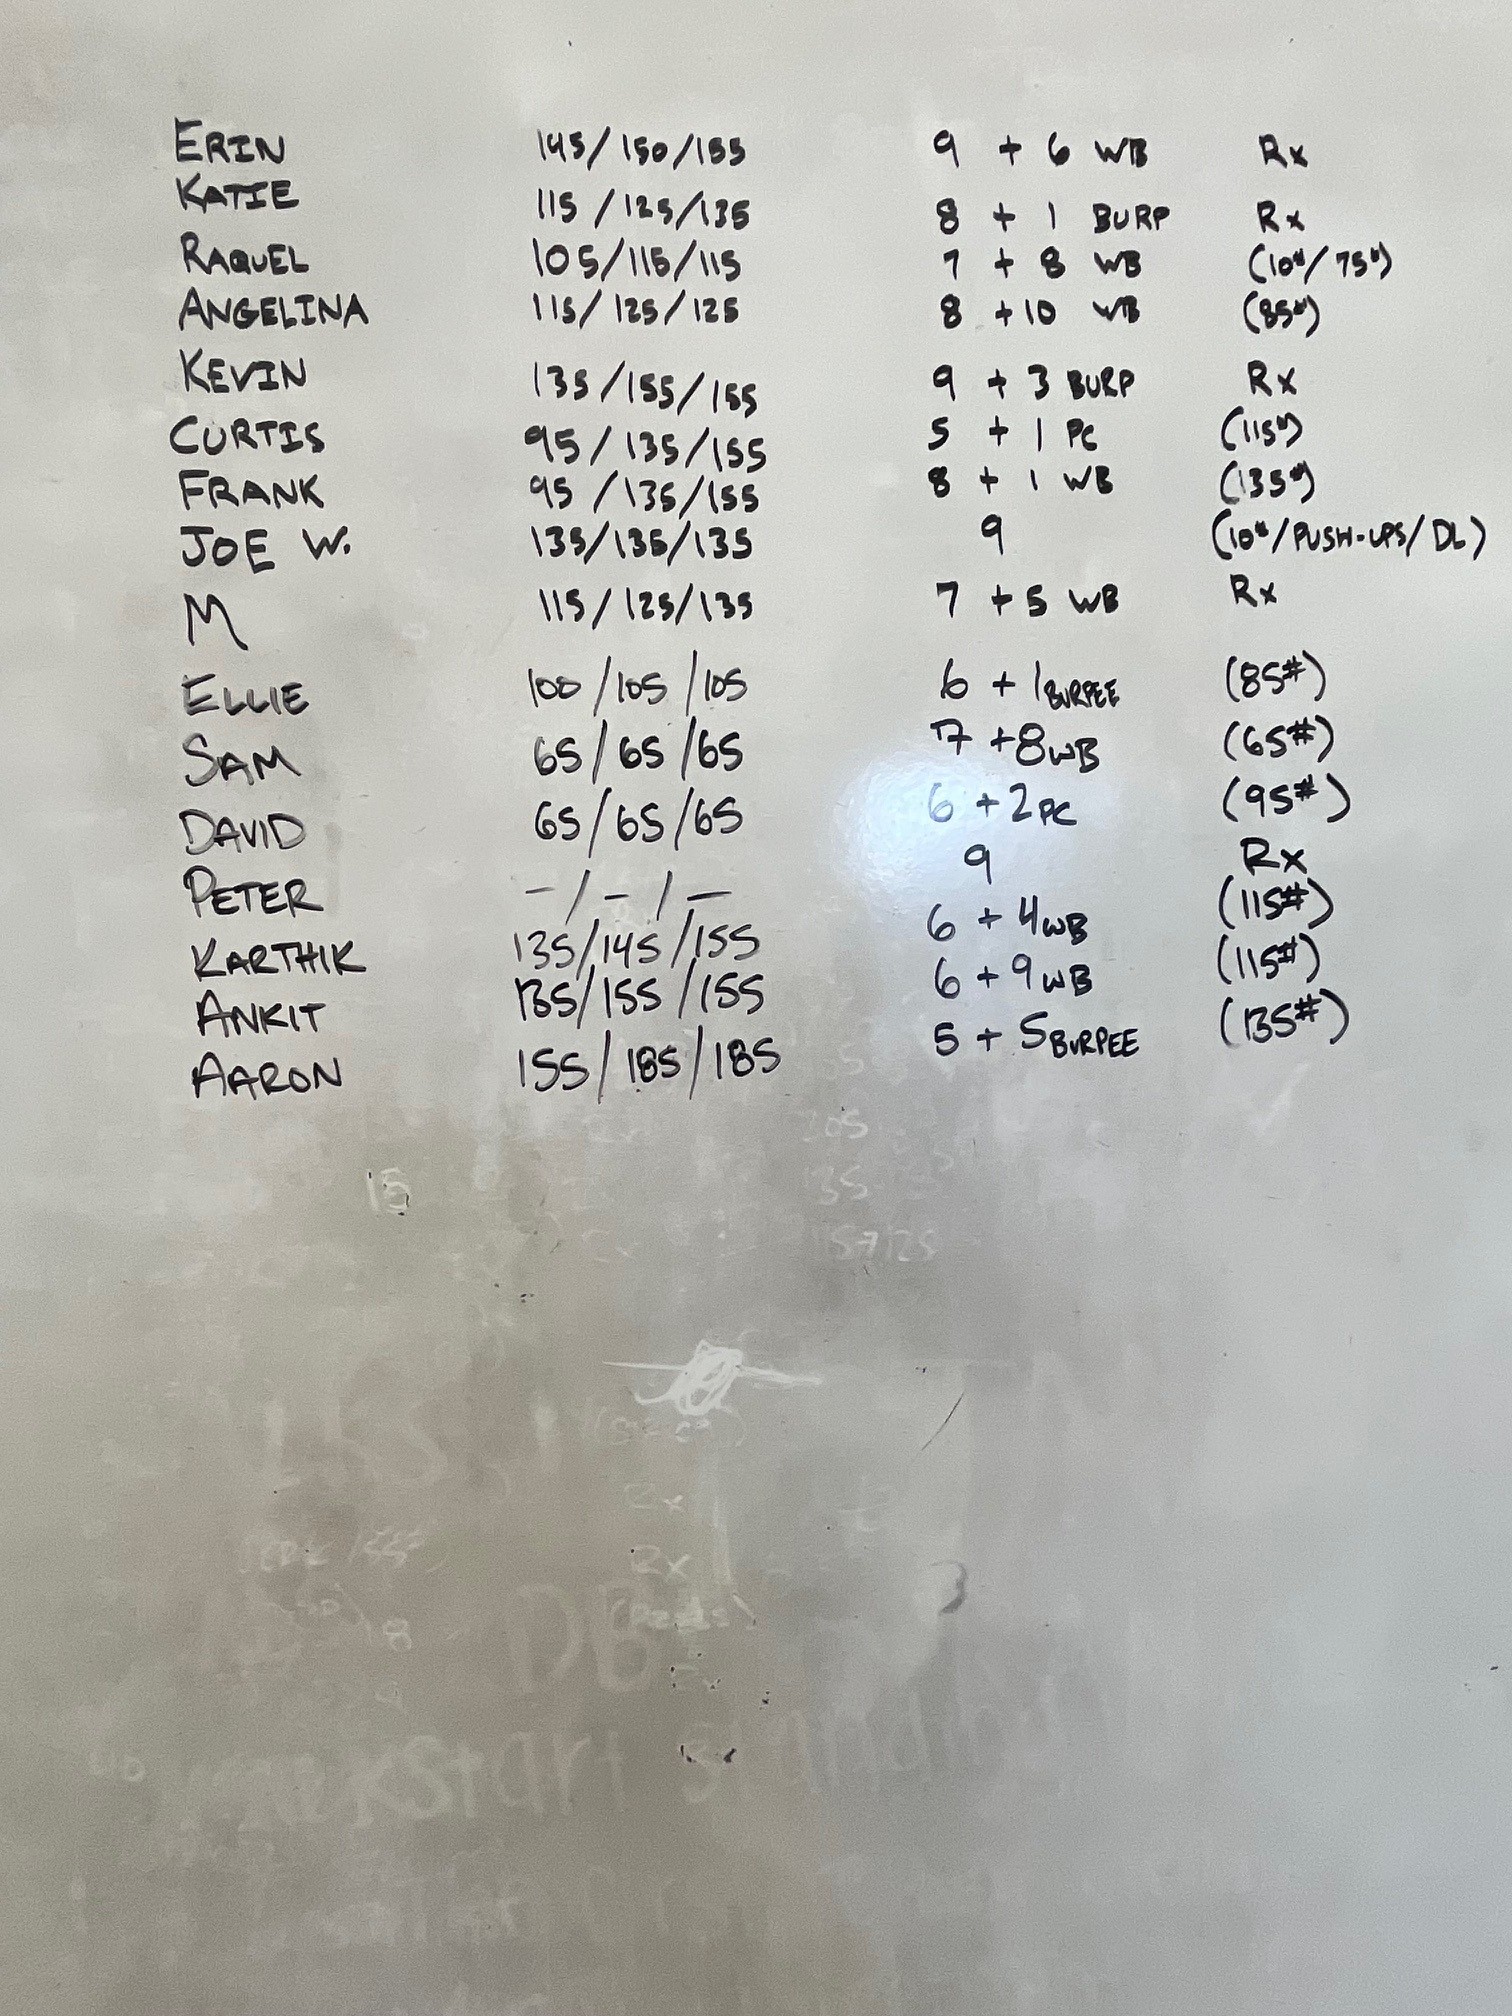 ERIN 145/150/155 9 + 6 WB Rx
KATIE 115/125/135 8 + 1 BURP Rx
RAQUEL 105/115/115 7 + 8 WB (10#/75#)
ANGELINA 115/125/125 8 + 10 WB (85#)
KEVIN 135/155/155 9 + 3 BURP Rx
CURTIS 95/135/155 5 + 1 PC (115#)
FRANK 95/135/155 8 + 1 WB (135#)
JOE W. 135/135/135 9 (10#/PUSH-UPS/DL)
M 115/125/135 7 + 5 WB Rx
ELLIE 100/105/105 6 + 1 BURPEE (85#)
SAM 65/65/65 7 + 8 WB (65#)
DAVID 65/65/65 6 + 2 PC (95#)
PETER -/-/- 9 Rx
KARTHIK 135/145/155 6 + 4 WB (115#)
ANKIT 135/155/155 6 + 9 WB (115#)
AARON 155/185/185 5 + 5 BURPEE (135#)
15
Rx
Rx
8
DB